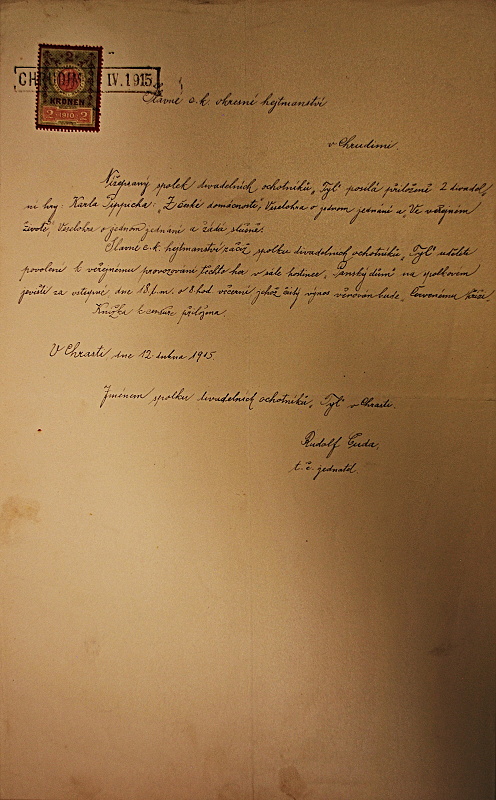 2
CHRUDIM IV. 1915
KRONEN
2 1910 2
Slavné c. k. okresní hejtmanství
v Chrudimi.
Nížepsaný spolek divadelních ochotníků „Tyl" posílá přiloženě 2 divadel
ní hry: Karla Tippmanna: „Z české domácnosti", Veselohra o jednom jednání a „Ve veřejném
životě", Veselohra o jednom jednání a žádá slušně:
Slavné c. k. hejtmanství račiž spolku divadelních ochotníků „Tyl" uděliti
povolení k veřejnému provozování těchto her v sále hostince „Panský dům" na spolkovém
jevišti za vstupné dne 18. t. m. o 8 hod. večerní jehož čistý výnos věnován bude „Červenému kříži".
Knížka k censuře přiložena.
V Chrasti dne 12. dubna 1915.
Jménem spolku divadelních ochotníků „Tyl" v Chrasti.
Rudolf
t. č. jednatel